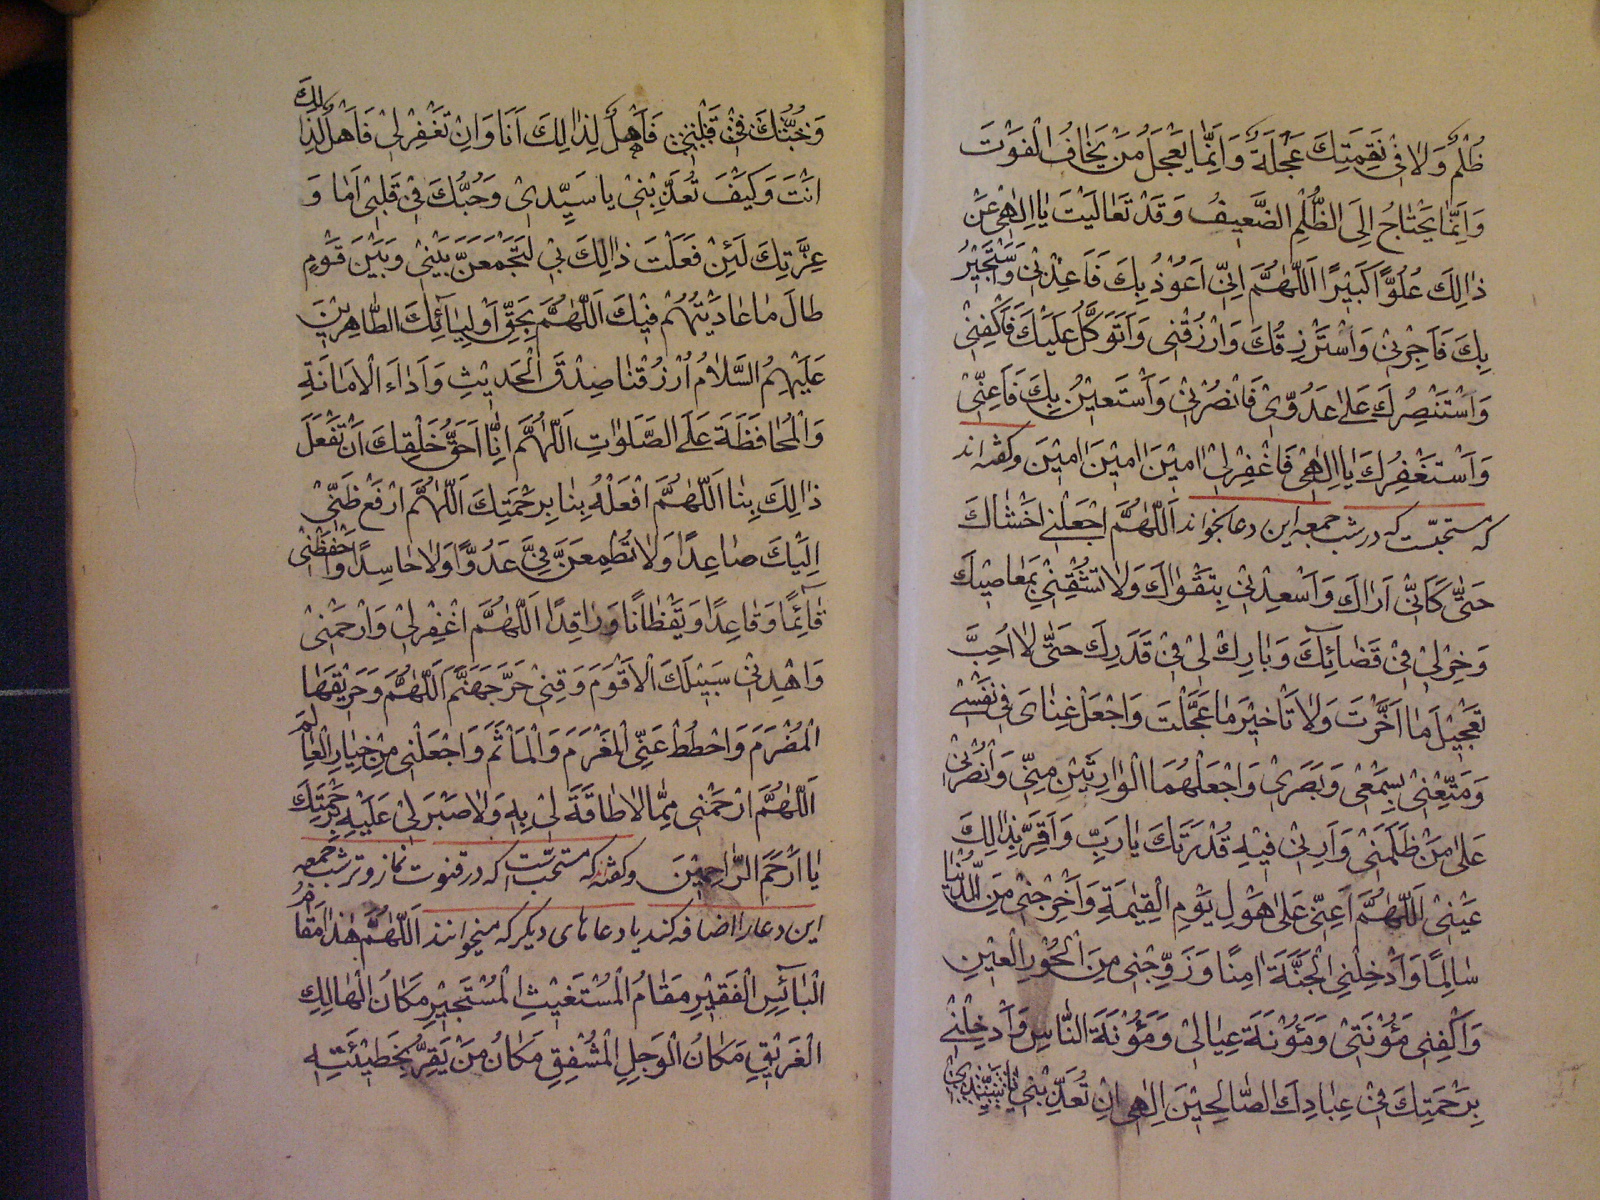 ظُلْمٌ وَلَا فِیْ نَقِمَتِكَ عَجَلَةٌ وَاِنَّمَا یَعْجَلُ مَنْ یَخَافُ الْفَوْتَ
وَاِنَّمَا یَحْتَاجُ اِلَی الظُّلْمِ الضَّعِیفُ وَقَدْ تَعَالَیْتَ یَا اِلٰهِیْ عَنْ
ذَالِكَ عُلُوًّا كَبِیْرًا اَللّٰهُمَّ اِنِّیْ اَعُوْذُ بِكَ فَاَعِذْنِیْ وَاَسْتَجِیْرُ
بِكَ فَاَجِرْنِیْ وَاَسْتَرْزِقُكَ وَارْزُقْنِی وَاَتَوَكَّلُ عَلَیْكَ فَاكْفِنِیْ
وَاَسْتَنْصِرُكَ عَلٰی عَدُوِّیْ فَانْصُرْنِیْ وَاَسْتَعِیْنُ بِكَ فَاَعِنِّیْ
وَاَسْتَغْفِرُكَ یَا اِلٰهِیْ فَاغْفِرْلِیْ اٰمِیْنَ اٰمِیْنَ اٰمِیْنَ وكفته اند
كه مستحبّست كه در شب جمعه این دعا بخواند اَللّٰهُمَّ اجْعَلْنِیْ اَخْشَاكَ
حَتّٰی كَاَنِّیْ اَرَاكَ وَاَسْعِدْنِیْ بِتَقْوٰاكَ وَلَا تُشْقِنِیْ بِمَعَاصِیْكَ
وَخِرْلِیْ فِیْ قَضَآئِكَ وَبَارِكْ لِیْ فِیْ قَدَرِكَ حَتّٰی لَا اُحِبَّ
تَعْجِیْلَ مَا اَخَّرْتَ وَلَا تَاْخِیْرَ مَا عَجَّلْتَ وَاجْعَلْ غِنَایَ فِیْ نَفْسِیْ
وَمَتِّعْنِیْ بِسَمْعِیْ وَبَصَرِیْ وَاجْعَلْهُمَا الْوَارِثَیْنِ مِنِّی وَانْصُرْنِیْ
عَلٰی مَنْ ظَلَمَنِیْ وَاَرِنِیْ فِیْهِ قُدْرَتَكَ یَا رَبِّ وَاَقِرَّ بِذَالِكَ
عَیْنِیْ اَللّٰهُمَّ اَعِنِّیْ عَلٰی هَوْلِ یَوْمِ الْقِیٰمَةِ وَاَخْرِجْنِیْ مِنَ الدُّنْیَا
سَالِمًا وَاَدْخِلْنِی الْجَنَّةَ اٰمِنًا وَزَوِّجْنِی مِنَ الْحُوْرِ الْعِیْنِ
وَاكْفِنِی مَؤُنَتِیْ وَمَؤُنَةَ عِیَالِیْ وَمَؤُنَةَ النَّاسِ وَاَدْخِلْنِیْ
بِرَحْمَتِكَ فِیْ عِبَادِكَ الصَّالِحِیْنَ اِلٰهِی اِنْ تُعَذِّبْنِیْ
وَحُبُّكَ فِیْ قَلْبِیْ فَاَهْلٌ لِذَالِكَ اَنَا وَاِنْ تَغْفِرْلِیْ فَاَهْلٌ لِذَالِكَ
اَنْتَ وَكَیْفَ تُعَذِّبْنِیْ یَا سَیِّدِیْ وَحُبُّكَ فِیْ قَلْبِیْ اَمَا وَ
عِزَّتِكَ لَئِنْ فَعَلْتَ ذَالِكَ بِیْ لَتَجْمَعَنَّ بَیْنِیْ وَبَیْنَ قَوْمٍ
طَالَ مَا عَادَیْتُهُمْ فِیْكَ اَللّٰهُمَّ بِحَقِّ اَوْلِیَآئِكَ الطَّاهِرِیْنَ
عَلَیْهِمُ السَّلَامُ اُرْزُقْنَا صِدْقَ الْحَدِیْثِ وَاَدَاءَ الْاَمَانَةِ
وَالْمُحَافَظَةَ عَلَی الصَّلَوَاتِ اَللّٰهُمَّ اِنَّا اَحَقُّ خَلْقِكَ اَنْ تَفْعَلَ
ذَالِكَ بِنَا اَللّٰهُمَّ افْعَلْهُ بِنَا بِرَحْمَتِكَ اَللّٰهُمَّ ارْفَعْ ظَنِّیْ
اِلَیْكَ صَاعِدًا وَلَا تُطْمِعَنَّ فِیَّ عَدُوًّا وَلَا حَاسِدًا وَاحْفَظْنِیْ
قَآئِمًا وَقَاعِدًا وَیَقْظَانًا وَرَاقِدًا اَللّٰهُمَّ اغْفِرْلِیْ وَارْحَمْنِیْ
وَاهْدِنِیْ سَبِیْلَكَ الْاَقْوَمَ وَقِنِیْ حَرَّ جَهَنَّمَ اَللّٰهُمَّ وَحَرِیْقَهَا
الْمُضْرَمَ وَاحْطُطْ عَنِّی الْمَغْرَمَ وَالْمَاْثَمَ وَاجْعَلْنِی مِنْ خِیَارِ الْعَالَمِ
اَللّٰهُمَّ ارْحَمْنِی مِمَّا لَا طَاقَةَ لِیْ بِهِ وَلَا صَبْرَ لِیْ عَلَیْهِ بِرَحْمَتِكَ
یَا اَرْحَمَ الرَّاحِمِیْنَ وكفته كه مستحبّست كه در قنوت نماز وتر شب جمعه
این دعا را اضافه كند با دعاهای دیكر كه میخوانند اَللّٰهُمَّ هٰذَا مَقَامُ
الْبَآئِسِ الْفَقِیْرِ مَقَامُ الْمُسْتَغِیْثِ الْمُسْتَجِیْرِ مَكَانُ الْهَالِكِ
الْغَرِیْقِ مَكَانُ الْوَجِلِ الْمُشْفِقِ مَكَانُ مَنْ یَقِرُّ بِخَطِیْئَتِهِ